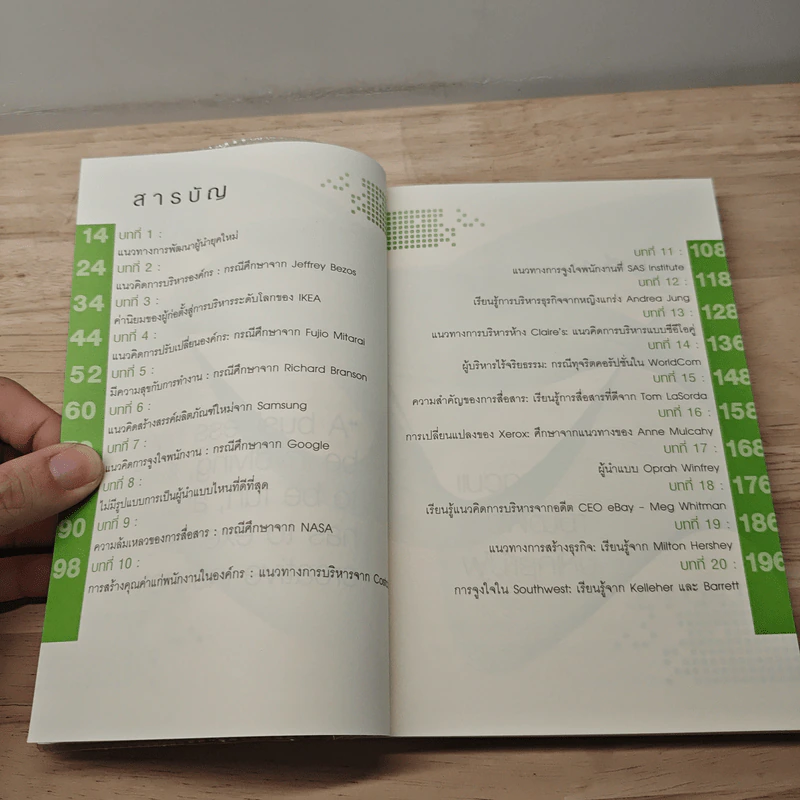 สารบัญ
14 บทที่ 1 :
แนวทางการพัฒนาผู้นำยุคใหม่
24 บทที่ 2 :
แนวคิดการบริหารองค์กร : กรณีศึกษาจาก Jeffrey Bezos
34 บทที่ 3 :
ค่านิยมของผู้ก่อตั้งสู่การบริหารระดับโลกของ IKEA
44 บทที่ 4 :
แนวคิดการปรับเปลี่ยนองค์กร: กรณีศึกษาจาก Fujio Mitarai
52 บทที่ 5 :
มีความสุขกับการทำงาน : กรณีศึกษาจาก Richard Branson
60 บทที่ 6 :
แนวคิดสร้างสรรค์ผลิตภัณฑ์ใหม่จาก Samsung
บทที่ 7 :
แนวคิดการจูงใจพนักงาน : กรณีศึกษาจาก Google
บทที่ 8 :
ไม่มีรูปแบบการเป็นผู้นำแบบไหนที่ดีที่สุด
90 บทที่ 9 :
ความล้มเหลวของการสื่อสาร : กรณีศึกษาจาก NASA
98 บทที่ 10 :
การสร้างคุณค่าแก่พนักงานในองค์กร : แนวทางการบริหารจาก
บทที่ 11 : 108
แนวทางการจูงใจพนักงานที่ SAS Institute
บทที่ 12 : 118
เรียนรู้การบริหารธุรกิจจากหญิงแกร่ง Andrea Jung
บทที่ 13 : 128
แนวทางการบริหารห้าง Claire's: แนวคิดการบริหารแบบซีอีโอคู่
บทที่ 14 : 136
ผู้บริหารไร้จริยธรรม: กรณีทุจริตคอรัปชั่นใน WorldCom
บทที่ 15 : 148
ความสำคัญของการสื่อสาร: เรียนรู้การสื่อสารที่ดีจาก Tom LaSorda
บทที่ 16 : 158
การเปลี่ยนแปลงของ Xerox: ศึกษาจากแนวทางของ Anne Mulcahy
บทที่ 17 : 168
ผู้นำแบบ Oprah Winfrey
บทที่ 18 : 176
เรียนรู้แนวคิดการบริหารจากอดีต CEO eBay - Meg Whitman
บทที่ 19 : 186
แนวทางการสร้างธุรกิจ: เรียนรู้จาก Milton Hershey
บทที่ 20 : 196
การจูงใจใน Southwest: เรียนรู้จาก Kelleher และ Barrett